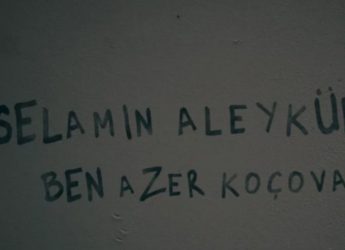 SELAMIN ALEYKÜ
BEN AZER KOÇOVA